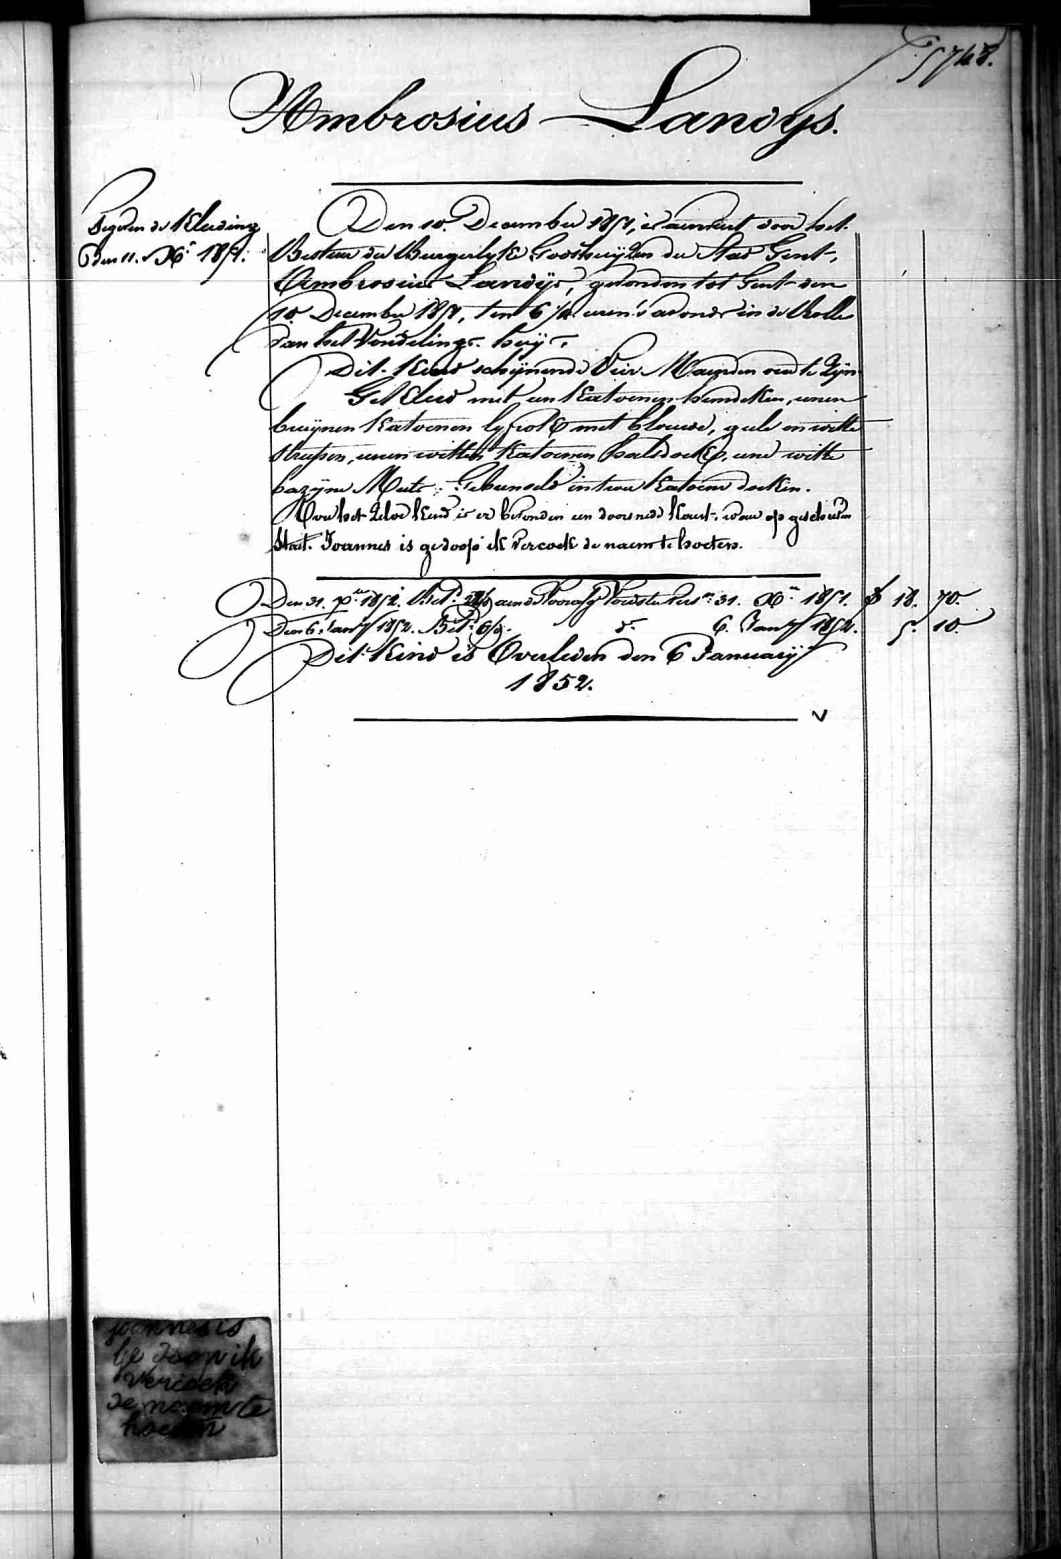 5748.
Ambrosius Landys.
de Kleeding
den 11. Xr 1851.
Den 10. December 1851, is aenveert door het
Bestuur der Burgerlyke Godshuyzen der Stad Gent,
Ambrosius Landÿs, gevonden tot Gent den
10 December 1851, ten 6 1/2 uren 's avonds in de Rolle
van het Vondelings-huÿs.
Dit Kind schÿnende Vier Maenden oud te Zÿn
Gekleed met een Katoenen hemdeken, eenen
bruÿnen Katoenen lÿfrok met blauwe, gele en witte
strepen, eenen witten Katoenen halsdoek, eene witte
bazÿne Muts. Gebunseld in twee Katoene doeken.
Nevens het Zelve Kind is er bevonden een doorsnede Kaert, waer op geschreven
Staet. Joannes is gedoopt ik Versoek de naem te hoeten.
Den 31. Xr 1852. Bet. aende Voorsg Voedster 31. Xr 1851. 18. 70.
Den 6 Jany 1852. Bet. do 6. Jany 1852. 5. 10.
Dit Kind is Overleden den 6 Januarÿ
1852.
Joannes is
ge Doop ik
Versoek
De naem te
hoeten